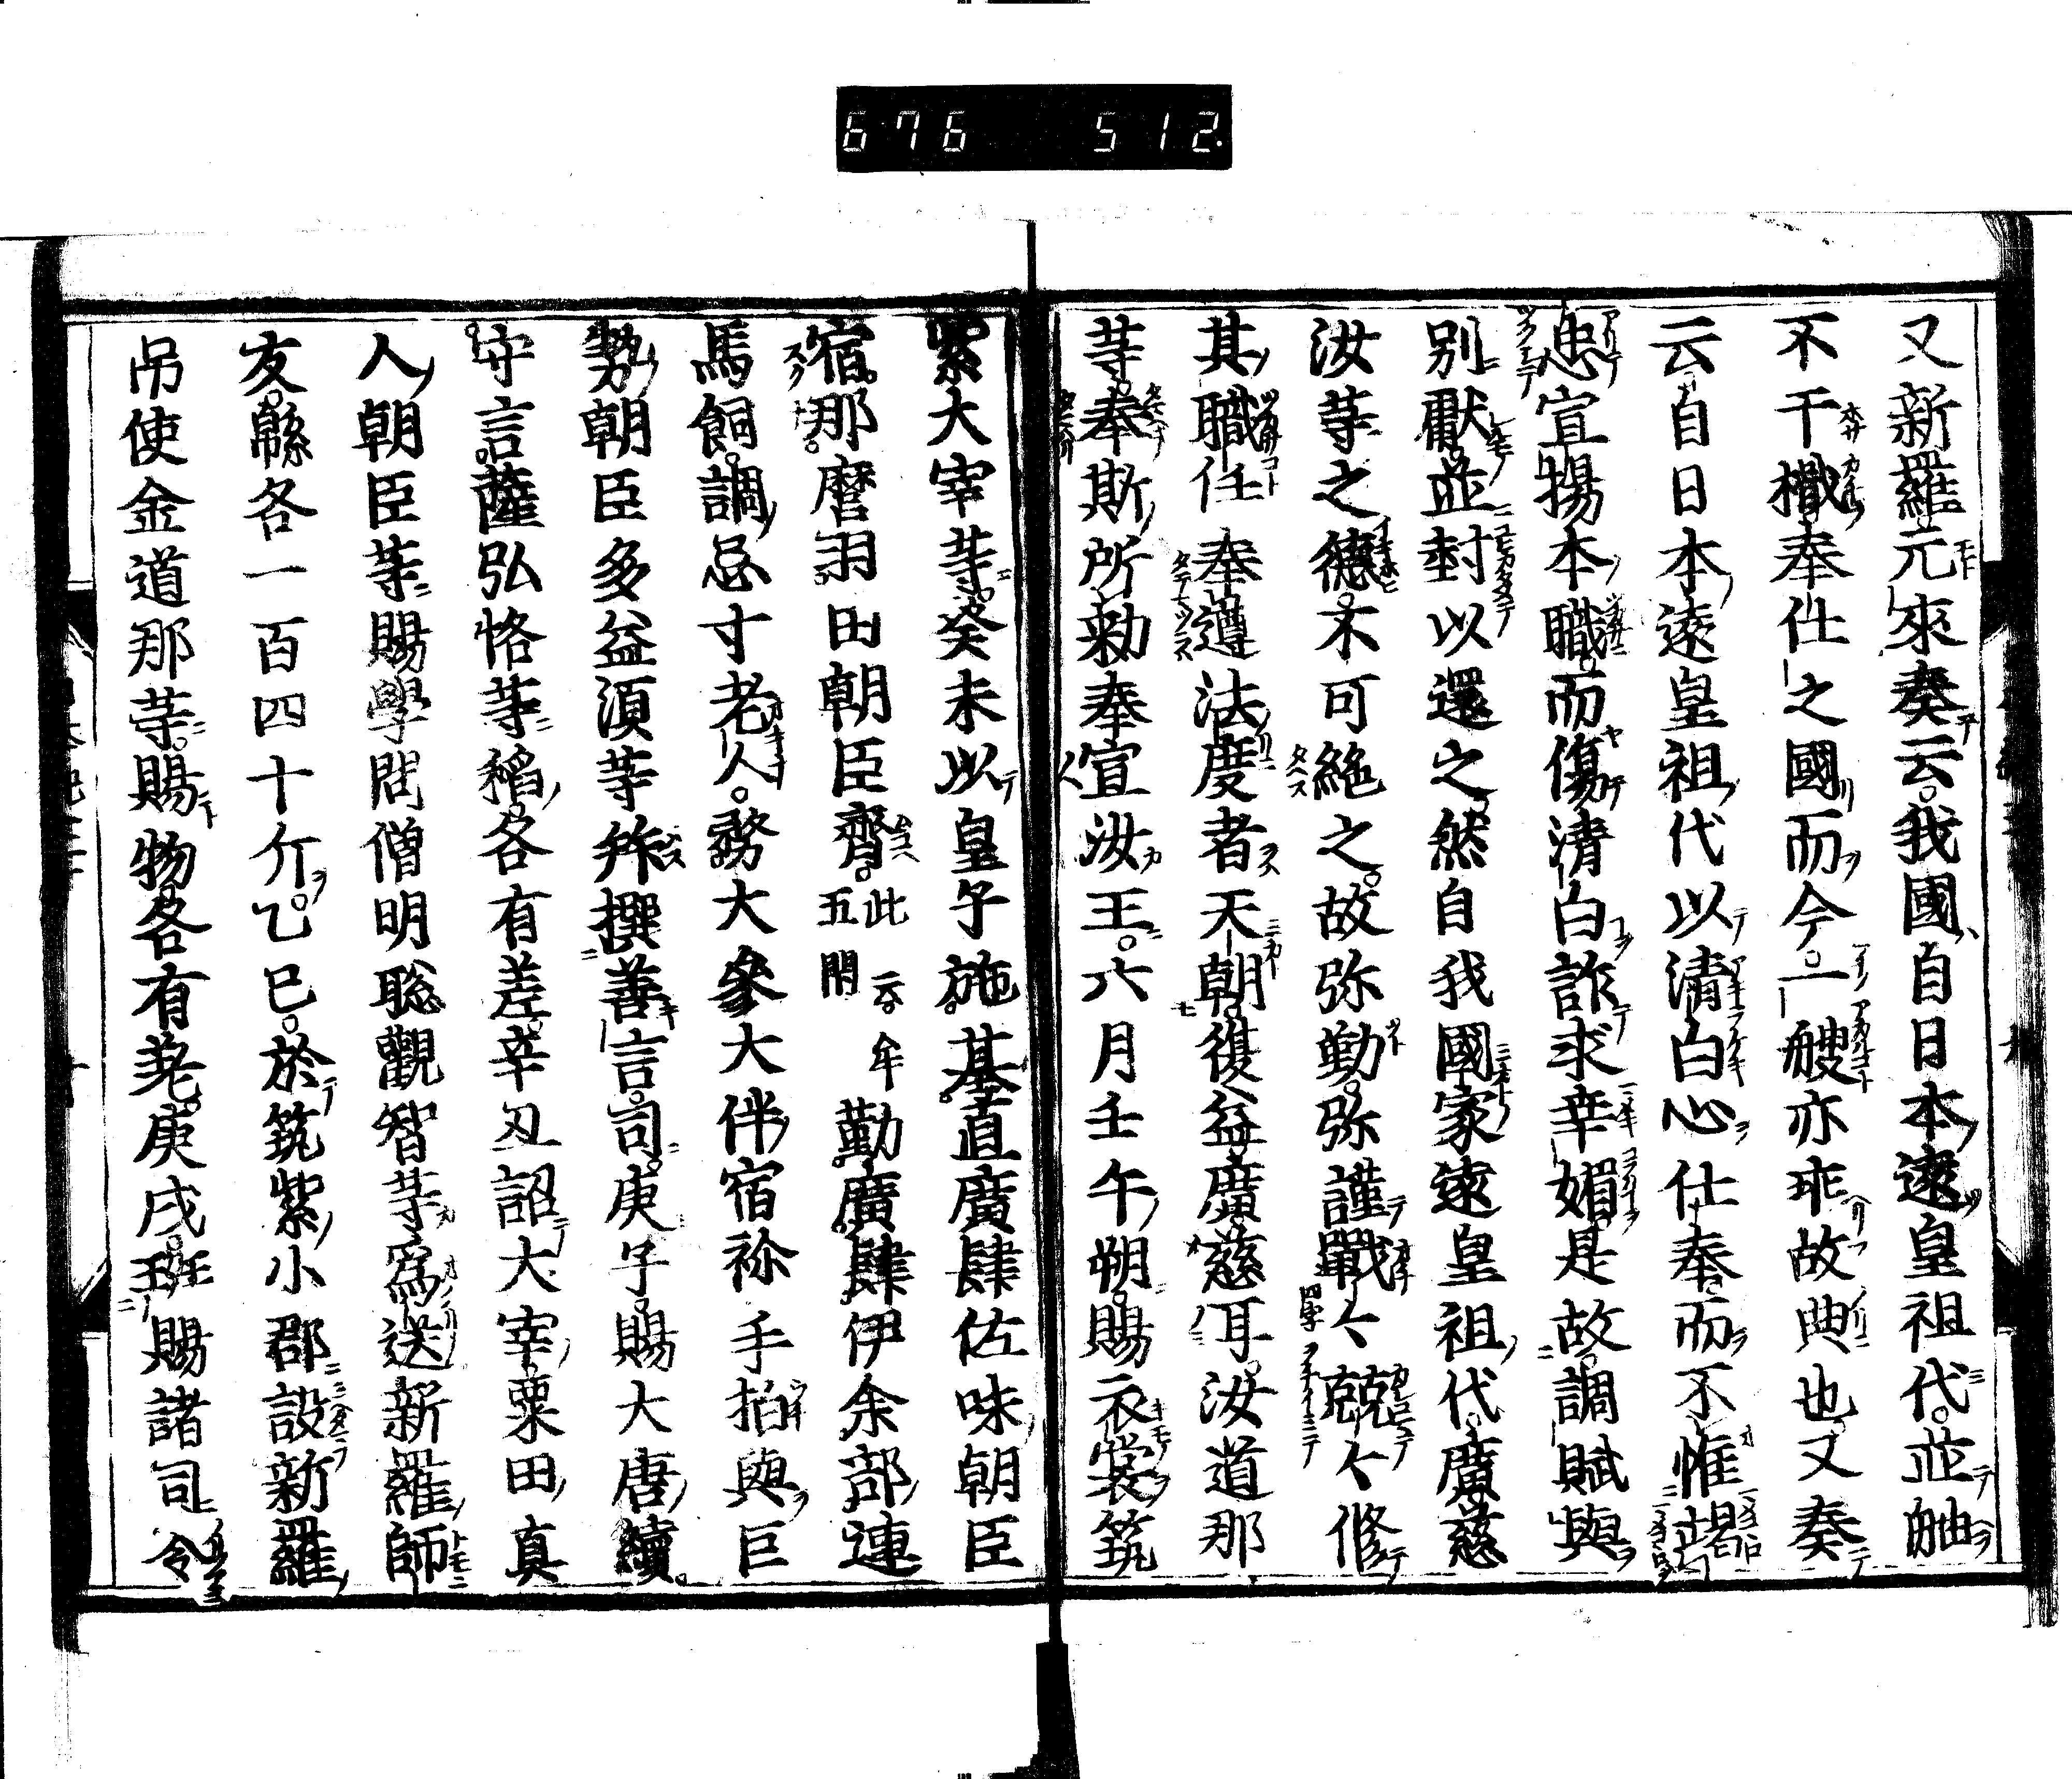 676 512.
又新羅元來奏云我國自日本遠皇祖代並舳
不干檝奉仕之國而今一艘亦乖故典也又奏
云自日本遠皇祖代以清白心仕奉而不惟竭
忠宣揚本職而傷清白詐求幸媚是故調賦與
別獻並封以還之然自我國家遠皇祖代廣慈
汝等之德不可絶之故弥勤弥謹戰々兢々修
其職任奉遵法度者天朝復益廣慈耳汝道那
等奉斯所勅奉宣汝王六月壬午朔賜衣裳筑
紫大宰等癸未以皇子施基直廣肆佐味朝臣
宿那麿羽田朝臣齊此云五牟閇勤廣肆伊余部連
馬飼調忌寸老人務大參大伴宿祢手拍與巨
勢朝臣多益須等幷撰善言司庚子賜大唐續
守言薩弘恪等稻各有差辛丑詔大宰粟田真
人朝臣等賜學問僧明聡觀智等爲送新羅師
友緜各一百四十斤乙巳於筑紫小郡設新羅
吊使金道那等賜物各有差庚戌班賜諸司令